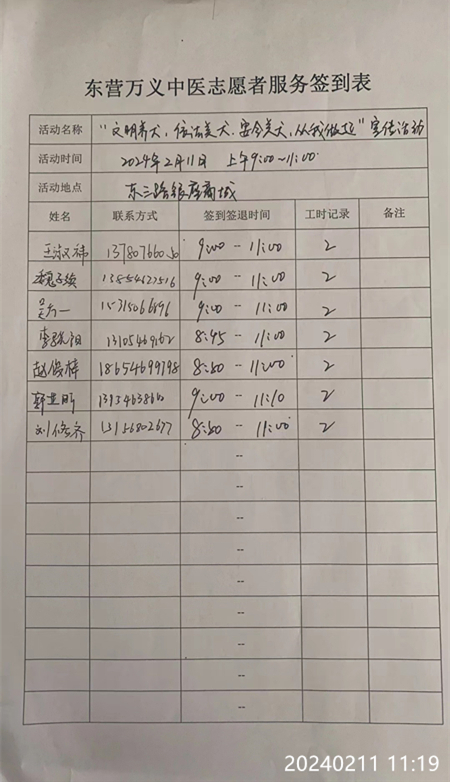 东营万义中医志愿者服务签到表
活动名称 “文明养犬,依法养犬,安全养犬,从我做起”宣传活动
活动时间 2024年2月11日 上午9:00~11:00
活动地点 东三路银座商城
姓名 联系方式 签到签退时间 工时记录 备注
9:00 -- 11:00 2
13854627516 9:00 -- 11:00 2
15315066896 9:00 -- 11:00 2
13105469162 8:45 -- 11:00 2
赵俊梓 18654699798 8:50 -- 11:00 2
9:00 -- 11:10 2
13156802677 8:50 -- 11:00 2
--
--
--
--
--
--
--
--
--
20240211 11:19